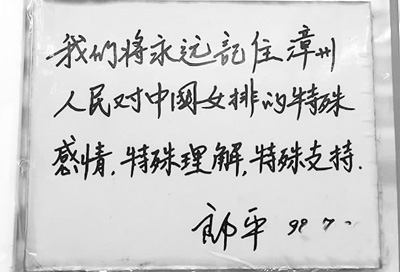 我们将永远記住漳州
人民对中國女排的特殊
感情，特殊理解，特殊支持.
郎平 98 7、